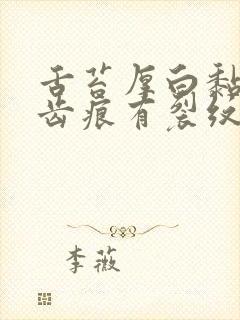 舌苔厚白黏
齿痕有裂纹
李薇